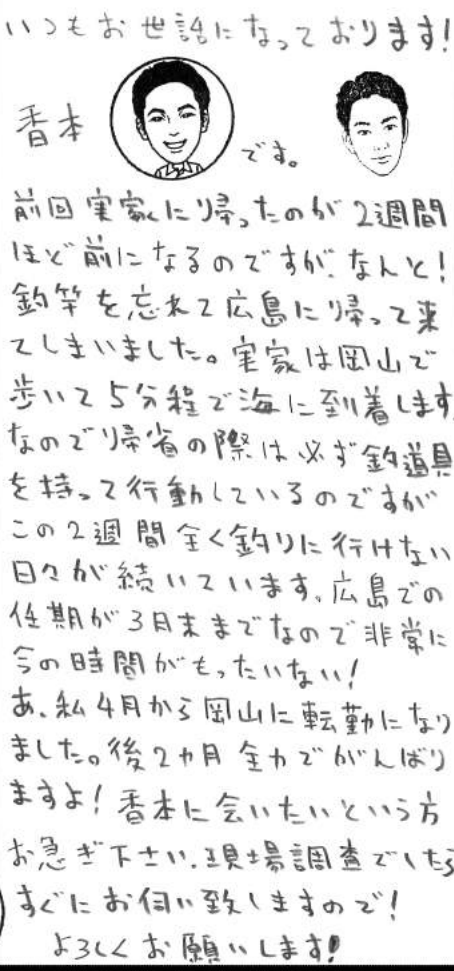 いつもお世話になっております!
香本
です。
前回実家に帰ったのが2週間
ほど前になるのですが、なんと!
釣竿を忘れて広島に帰って来
てしまいました。実家は岡山で
歩いて5分程で海に到着します。
なので帰省の際は必ず釣道具
を持って行動しているのですが
この2週間全く釣りに行けない
日々が続いています。広島での
任期が3月末までなので非常に
今の時間がもったいない!
あ、私4月から岡山に転勤になり
ました。後2カ月全力でがんばり
ますよ!香本に会いたいという方
お急ぎ下さい。現場調査でしたら
すぐにお伺い致しますので!
よろしくお願いします!